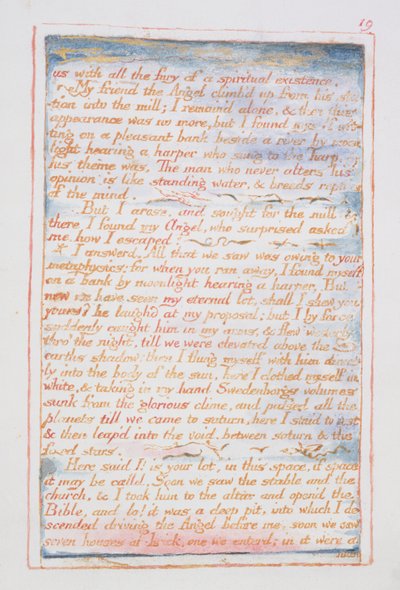 19
us with all the fury of a spiritual existence.
My friend the Angel climb'd up from his sta-
tion into the mill; I remain'd alone, & then this
appearance was no more, but I found myself sit-
ting on a pleasant bank beside a river by moon
light hearing a harper who sung to the harp. &
his theme was, The man who never alters his
opinion is like standing water, & breeds reptiles
of the mind.
But I arose, and sought for the mill, &
there I found my Angel, who surprised asked
me, how I escaped?
I answerd, All that we saw was owing to your
metaphysics; for when you ran away, I found myself
on a bank by moonlight hearing a harper, But
now we have seen my eternal lot, shall I shew you
yours? he laughd at my proposal; but I by force
suddenly caught him in my arms, & flew westerly
thro' the night, till we were elevated above the
earths shadow; then I flung myself with him direct-
ly into the body of the sun, here I clothed myself in
white, & taking in my hand Swedenborgs volumes
sunk from the glorious clime, and passed all the
planets till we came to saturn, here I staid to rest
& then leap'd into the void, between saturn & the
fixed stars.
Here said I! is your lot, in this space, if space
it may be calld, Soon we saw the stable and the
church, & I took him to the altar and open'd the
Bible, and lo! it was a deep pit, into which I de-
scended driving the Angel before me, soon we saw
seven houses of brick, one we enterd; in it were a